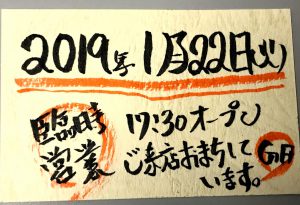 2019年1月22日(火)
臨時営業
17:30オープン
ご来店おまちして
います。